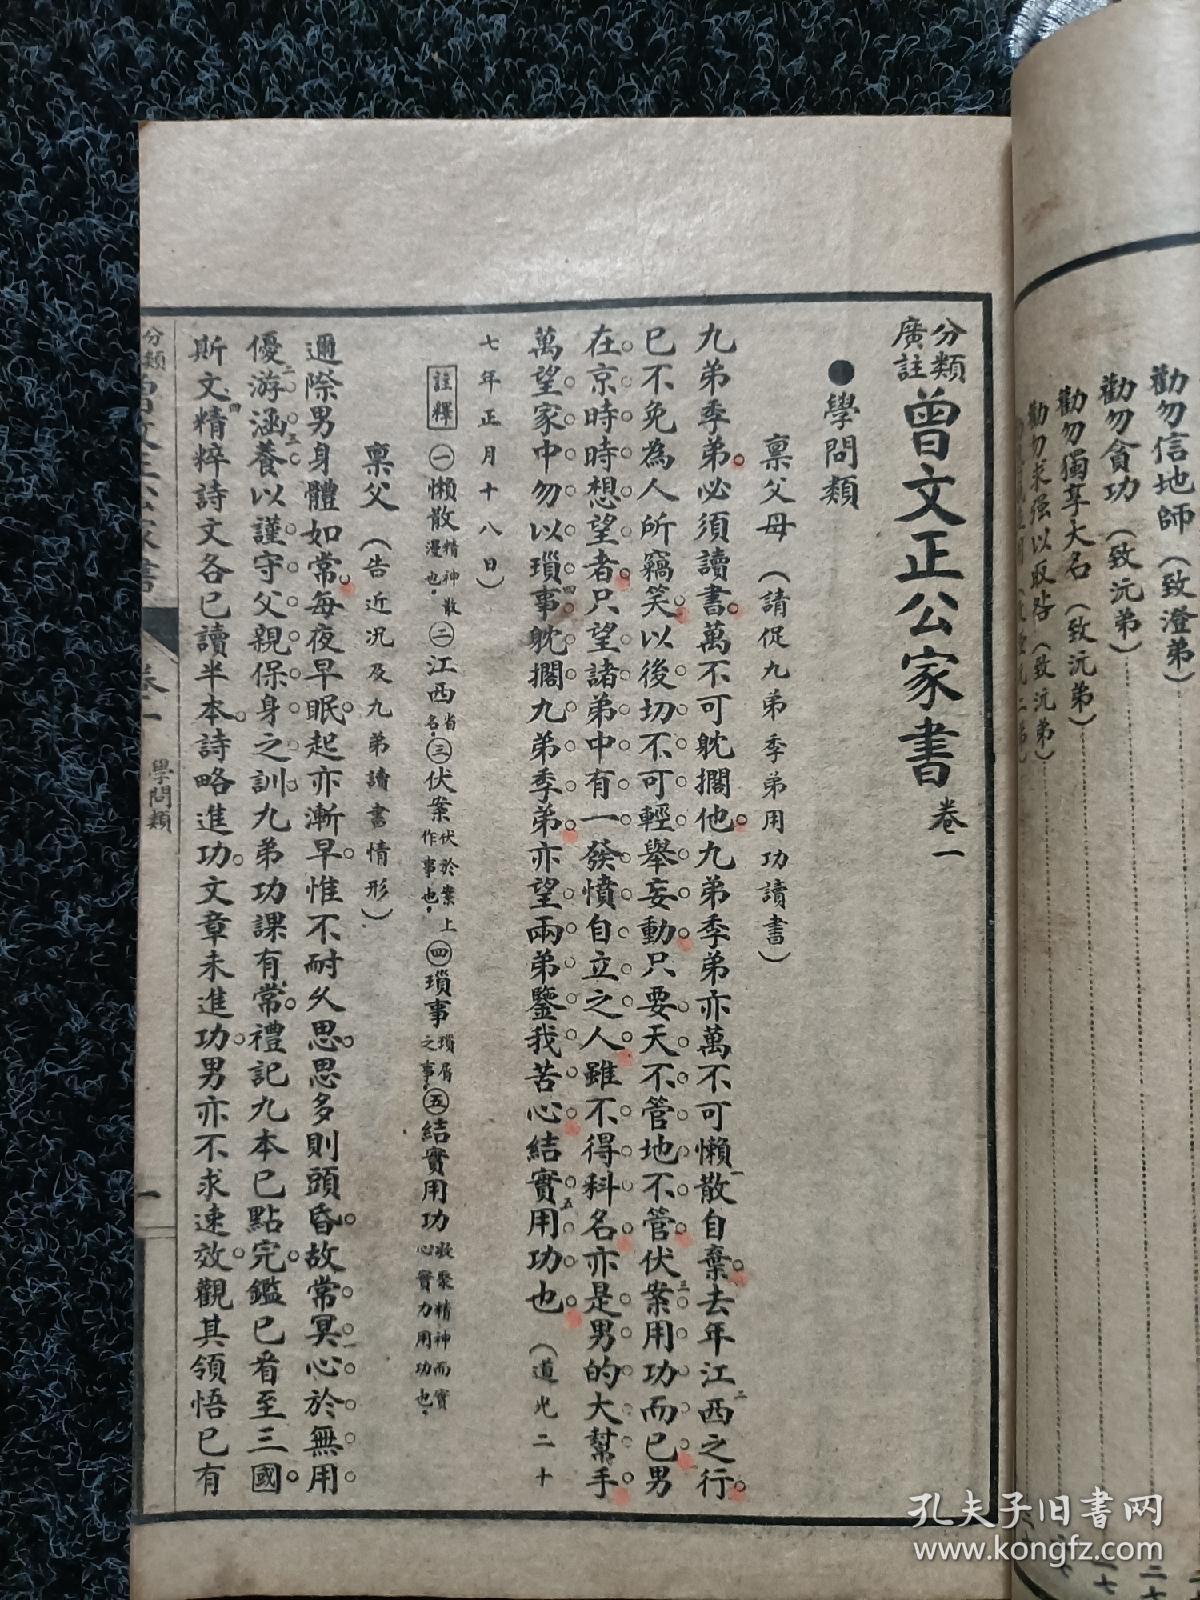 勸勿信地師（致澄弟）
勸勿貪功（致沅弟）
勸勿獨享大名（致沅弟）
勸勿求强以取咎（致沅弟）
分類
廣註
曾文正公家書卷一
●學問類
稟父母（請促九弟季弟用功讀書）
九弟季弟必須讀書萬不可躭擱他九弟季弟亦萬不可懶一散自棄去年江西二之行
已不免為人所竊笑以後切不可輕舉妄動只要天不管地不管伏案三用功而已男
在京時時想望者只望諸弟中有一發憤自立之人雖不得科名亦是男的大幫手
萬望家中勿以瑣事四躭擱九弟季弟亦望兩弟鑒我苦心結實五用功也（道光二十
七年正月十八日）
註釋㊀懶散精神散漫也㊁江西省名㊂伏案伏於案上作事也㊃瑣事瑣屑之事㊄結實用功凝聚精神而實心實力用功也
稟父（告近況及九弟讀書情形）
邇際男身體如常每夜早眠起亦漸早惟不耐久思思多則頭昏故常冥一心於無用
優游二涵養三以謹守父親保身之訓九弟功課有常禮記九本已點完鑑已看至三國
斯文精四粹詩文各已讀半本詩略進功文章未進功男亦不求速效觀其領悟已有
分類
家書
卷一
學問類
一
孔夫子旧书网
www.kongfz.com